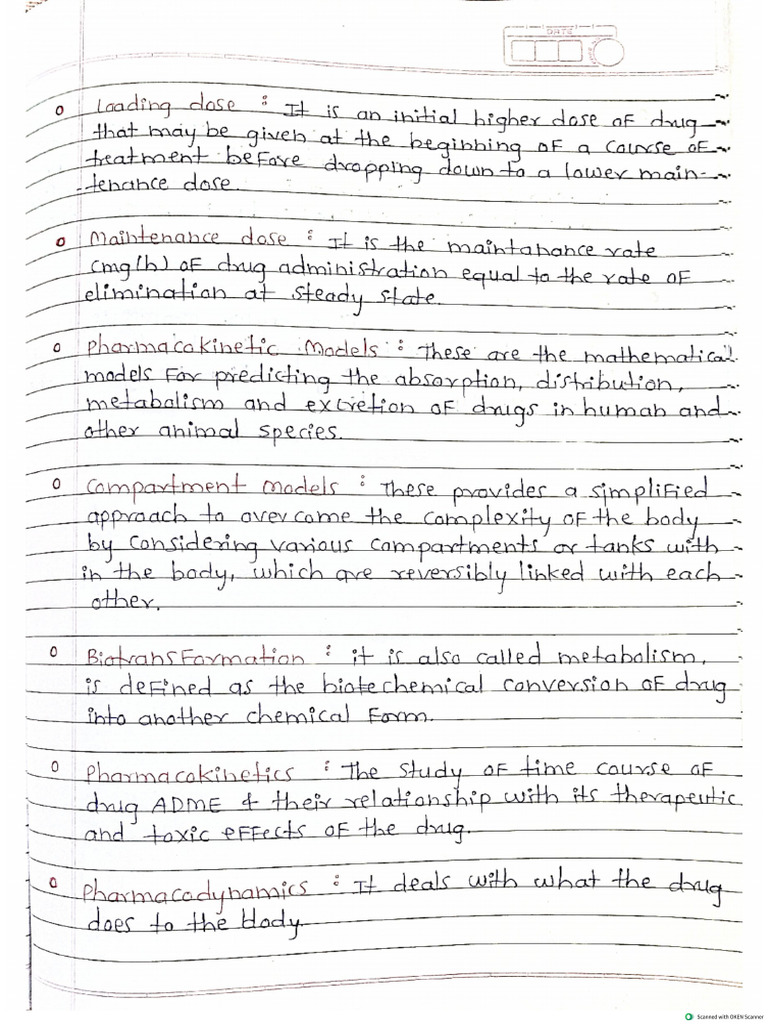 DATE
Loading dose : It is an initial higher dose of drug
that may be given at the beginning of a course of
treatment before dropping down to a lower main-
-tenance dose.
Maintenance dose : It is the maintanance rate
(mg/h) of drug administration equal to the rate of
elimination at steady state.
Pharmacokinetic Models : These are the mathematical
models for predicting the absorption, distribution,
metabolism and excretion of drugs in human and
other animal species.
Compartment models : These provides a simplified
approach to overcome the complexity of the body
by considering various compartments or tanks with
in the body, which are reversibly linked with each
other.
Biotransformation : it is also called metabolism,
is defined as the biotechemical conversion of drug
into another chemical form.
Pharmacokinetics : The study of time course of
drug ADME & their relationship with its therapeutic
and toxic effects of the drug.
Pharmacodynamics : It deals with what the drug
does to the body.
Scanned with OKEN Scanner